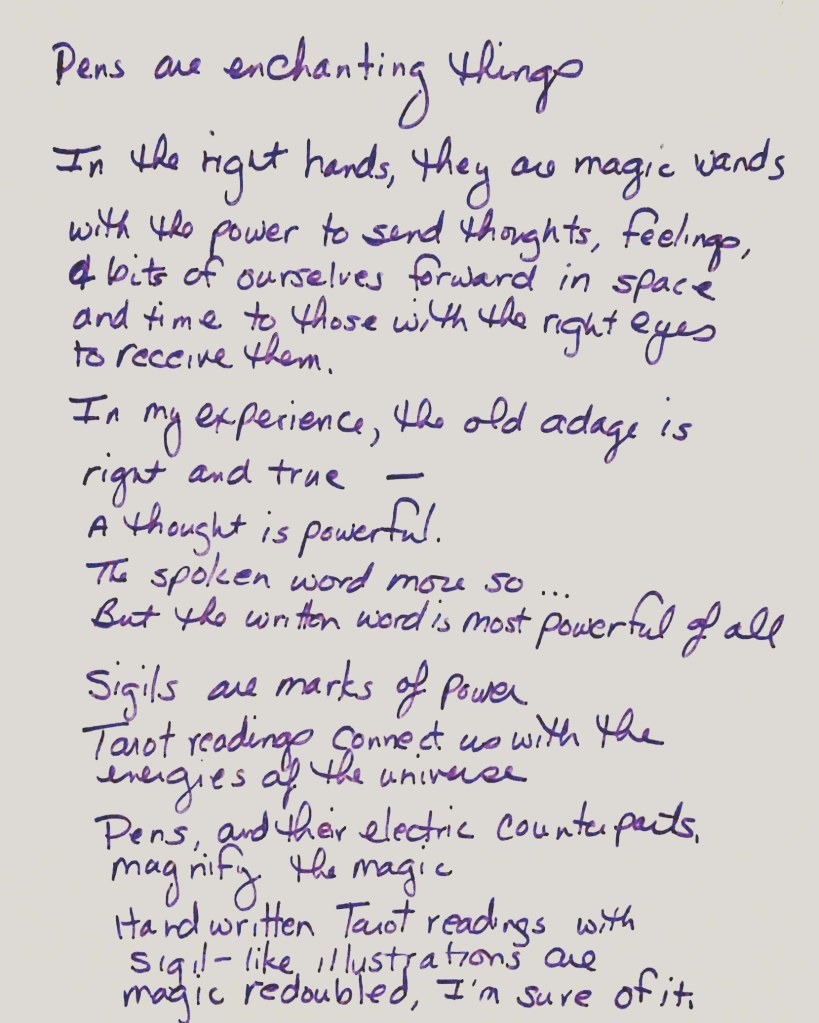 Pens are enchanting things
In the right hands, they are magic wands
with the power to send thoughts, feelings,
& bits of ourselves forward in space
and time to those with the right eyes
to receive them.
In my experience, the old adage is
right and true —
A thought is powerful.
The spoken word more so ...
But the written word is most powerful of all
Sigils are marks of power
Tarot readings connect us with the
energies of the universe
Pens, and their electric counterparts,
magnify the magic
Handwritten Tarot readings with
sigil-like illustrations are
magic redoubled, I'm sure of it.